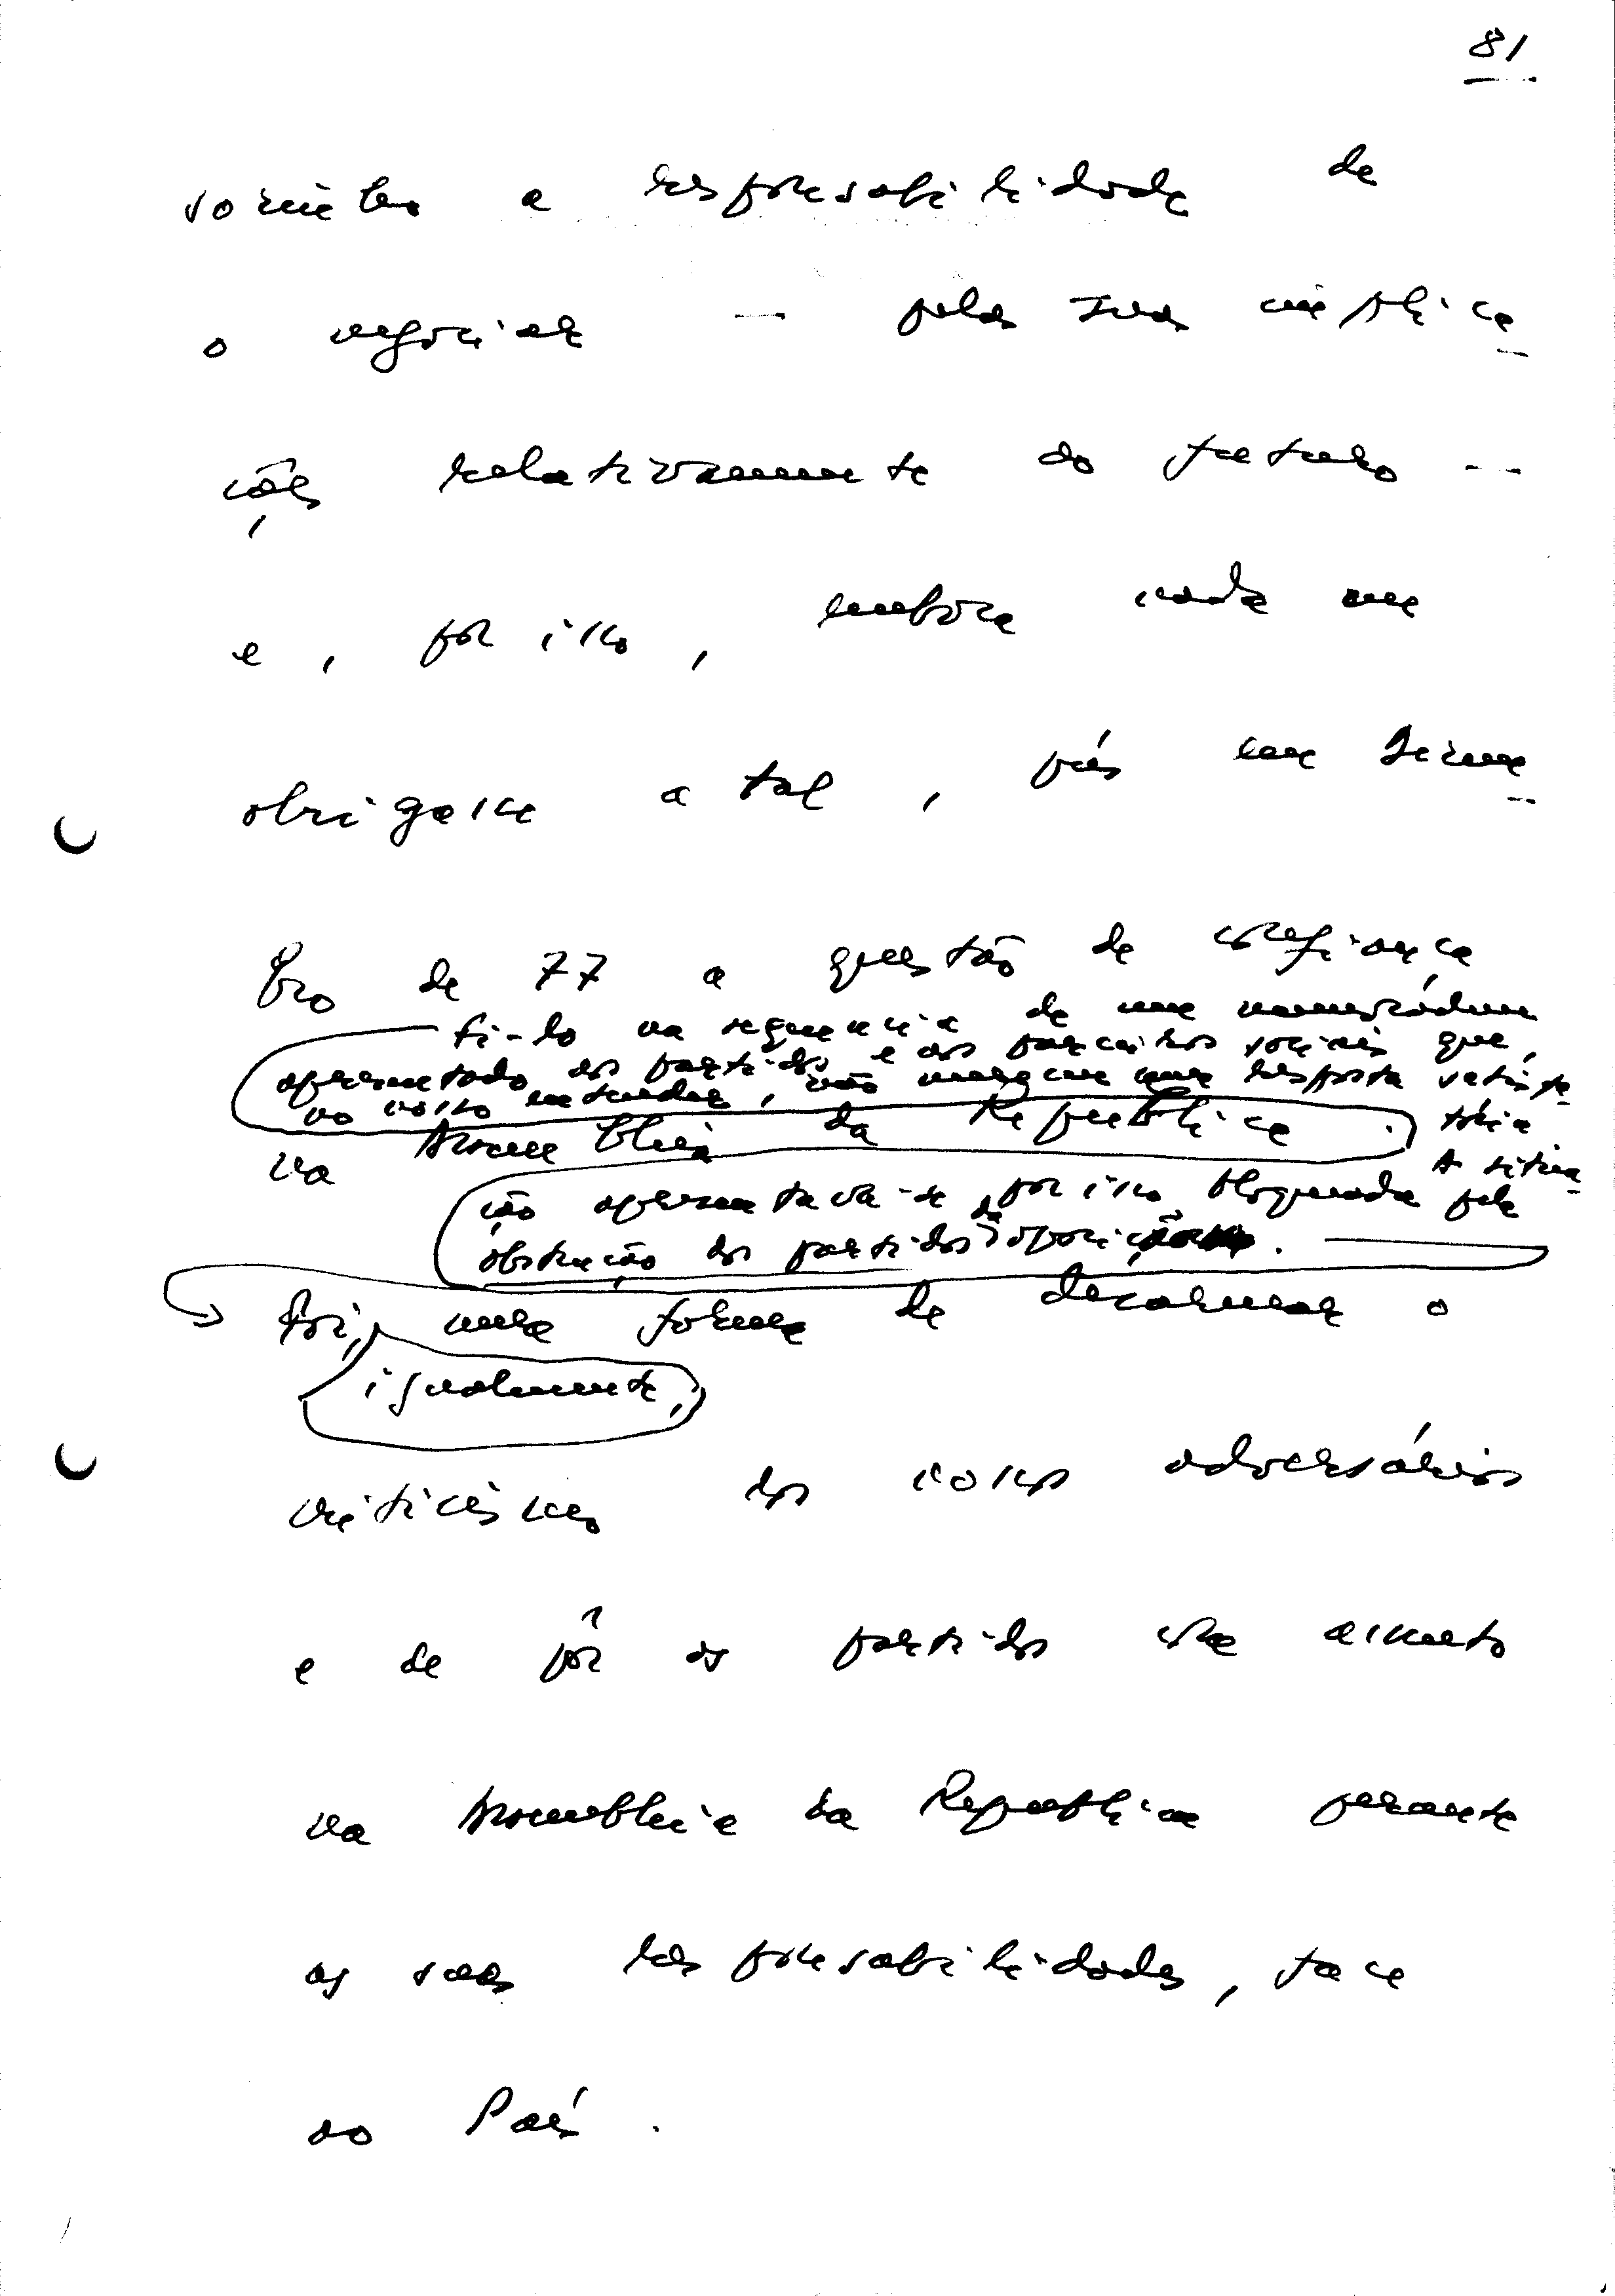 81
sozinho a responsabilidade de
o negociar — pelas suas implica-
ções relativamente ao futuro —
e, por isso, embora nada me
obrigasse a tal, pus em Dezem-
bro de 77 a questão de confiança
fi-lo na sequência de um memorandum
apresentado aos partidos e aos parceiros sociais que,
ao nosso entender, não mereceu uma resposta satisfa-
tória
na Assembleia da República.
A situa-
ção apresentava-se, por isso, bloqueada pela
obstrução dos partidos da oposição.
Foi, uma forma de desarmar o
igualmente,
criticismo dos nossos adversários
e de pôr os partidos com assento
na Assembleia da República perante
as suas responsabilidades, face
ao País.